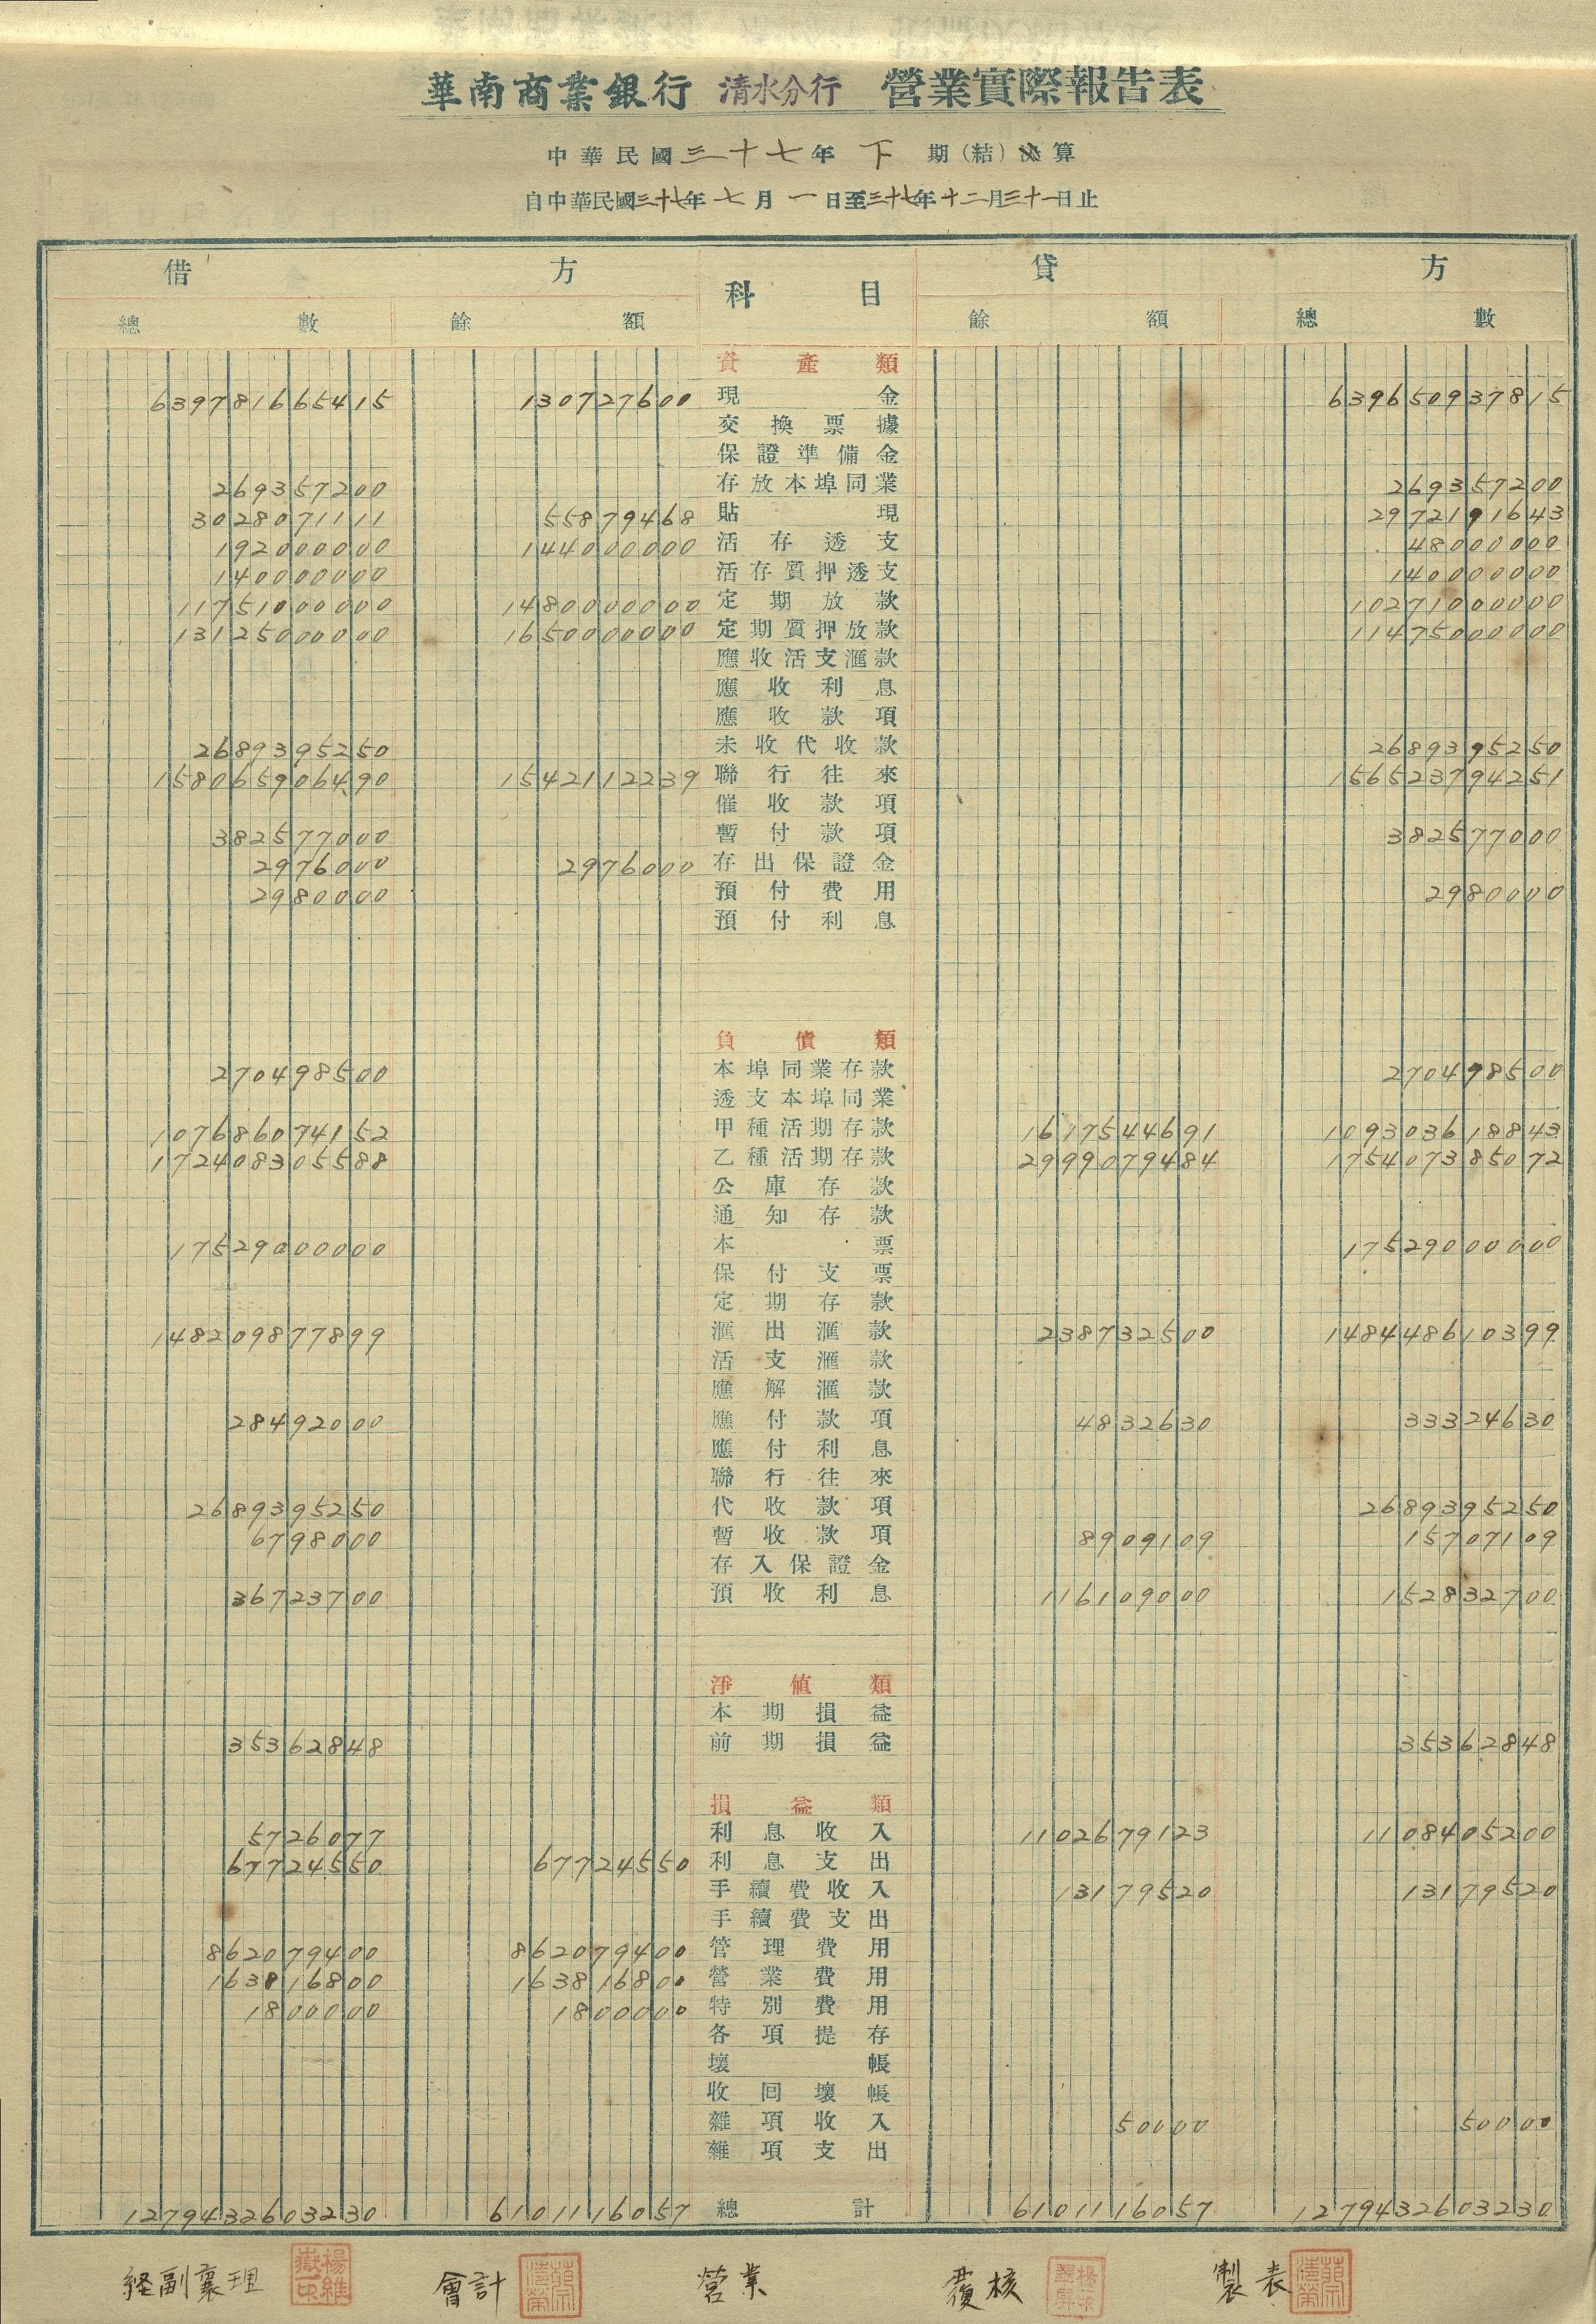 華南商業銀行 清水分行 營業實際報告表
中華民國三十七年 下 期(結)決算
自中華民國三十七年七月一日至三十七年十二月三十一日止
借方 科目 貸方
總數 餘額 餘額 總數
資產類
639781665415 130727600 現金 639650937815
交換票據
保證準備金
269357200 存放本埠同業 269357200
3028071111 55879468 貼現 2972191643
192000000 144000000 活存透支 48000000
140000000 活存質押透支 140000000
11751000000 1480000000 定期放款 10271000000
13125000000 1650000000 定期質押放款 11475000000
應收活支滙款
應收利息
應收款項
2689395250 未收代收款 2689395250
158065906490 1542112239 聯行往來 156523794251
催收款項
382577000 暫付款項 382577000
2976000 2976000 存出保證金
2980000 預付費用 2980000
預付利息
負債類
270498500 本埠同業存款 270498500
透支本埠同業
107686074152 甲種活期存款 1617544691 109303618843
172408305588 乙種活期存款 2999079484 175407385072
公庫存款
通知存款
17529000000 本票 17529000000
保付支票
定期存款
148209877899 滙出滙款 238732500 148448610399
活支滙款
應解滙款
28492000 應付款項 4832630 33324630
應付利息
聯行往來
2689395250 代收款項 2689395250
6798000 暫收款項 8909109 15707109
存入保證金
36723700 預收利息 116109000 152832700
淨值類
本期損益
35362848 前期損益 35362848
損益類
5726077 利息收入 1102679123 1108405200
67724550 67724550 利息支出
手續費收入 13179520 13179520
手續費支出
862079400 862079400 管理費用
163816800 163816800 營業費用
1800000 1800000 特別費用
各項提存
壞帳
收回壞帳
雜項收入 50000 50000
雜項支出
1279432603230 6101116057 總計 6101116057 1279432603230
経副襄理 會計 營業 覆核 製表